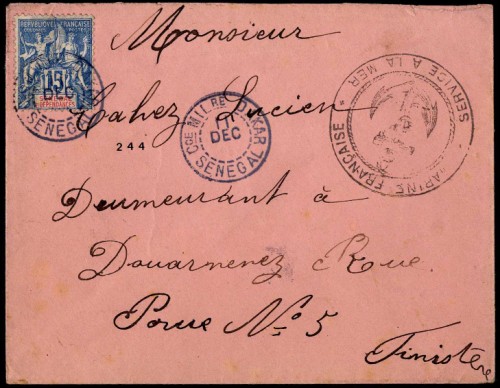 REPUBLIQUE FRANÇAISE
COLONIES POSTES
15
DEC
DEPENDANCES
SENEGAL
Monsieur
Cahez Lucien
244
Cᴳᴱ MILᴿᴱ DAKAR
DEC
SENEGAL
MARINE FRANÇAISE
SERVICE A LA MER
Deumeurant à
Douarnenez Rue
Porue Nº 5
Finistère